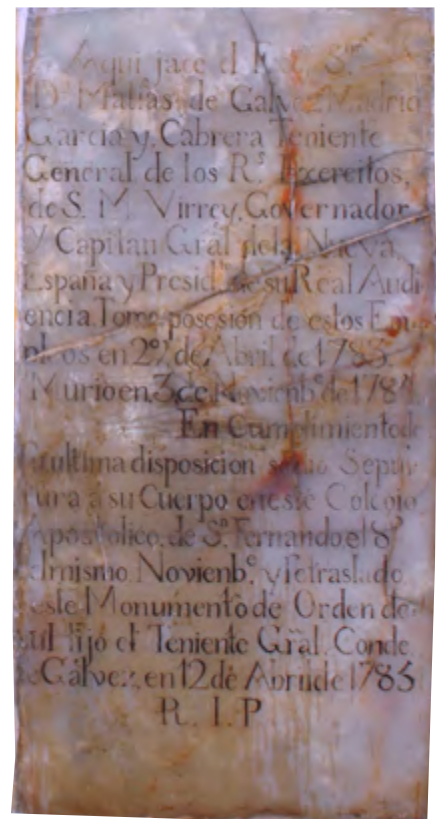 Aqui jace el Exc. S.or
D.n Matias de Galvez Madrid
Garcia y Cabrera Teniente
General de los R.s Exercitos,
de S. M. Virrey, Governador
Y Capitan Gral. dela Nueva
España y Presid.te de su Real Audi
encia. Tomo posesión de estos Em
pleos en 29. de Abril de 1783.
Murio en 3 de Novienb.e de 1784.
En Cumplimiento de
su ultima disposicion se dio Sepul
tura a su Cuerpo en este Colegio
Apostolico. de S.n Fernando, el 8.
del mismo. Novienb.e y se traslado
a este Monumento de Orden de
su Hijo el Teniente Gral. Conde
de Gálvez, en 12 de Abril de 1785
R. I. P